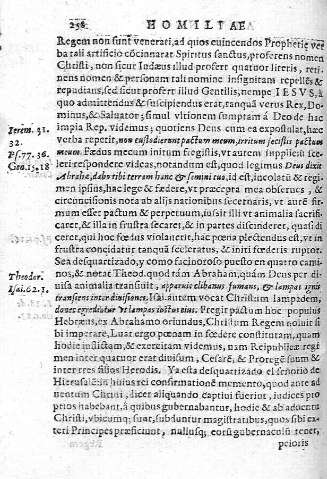 256 HOMILIAE
Regem non sunt venerati, ad quos euincendos Prophetię ver
ba tali artificio concinnarat Spiritus sanctus, proferens nomen
Christi, non sicut Iudæus illud profert quatuor literis, reti-
nens nomen & personam tali nomine insignitam repellēs & re
repudians, sed sicut profert illud Gentilis, nempe IESVS, à
quo admittendus & suscipiendus erat, tanquā verus Rex, Do-
minus, & Saluator; simul vltionem sumptam à Deo de hac
Ierem. 31. impia Rep. videmus; quotiens Deus cum ea expostulat, hæc
32. verba repetit, non custodierunt pactum meum, irritum fecistis pactum
Ps. 77. 36. meum. Fœdus mecum initum fregistis, vt autem impij scele
Gen. 15. 18 sceleri respondere videas, notandum est, quod legimus Deus dixit
Abrahæ, dabo tibi terram hanc & semini tuo, id est, incolatū & regi-
men ipsius, hac lege & fœdere, vt præcepta mea obserues,
circuncisionis nota ab alijs nationibus secernaris, vt autē fir-
mum esset pactum & perpetuum, iussit illi vt animalia sacrifi-
caret, & illa in frustra secaret, & in partes discinderet, quasi di
ceret, qui hoc fœdus violauerit, hac pœna plectendus est, vt in
frustra concidatur tanquā sceleratus, & initi fœderis ruptor.
Sea desquartizado, y como facinoroso puesto en quatro cami-
Theodor. nos, & notat Theod. quod tam Abraham, quàm Deus per di-
uisa animalia transiuit, apparuit clibanus fumans, & lampas ignis
Isai. 62. 1. transiens inter diuisiones. Isai. autem vocat Christum lampadem,
donec egrediatur vt lampas iustus eius. Fregit pactum hoc populus
Hebræus, ex Abrahamo oriundus, Christum Regem noluit si
bi imperare, Luat ergo pœnam in fœdere constitutam, quam
hodie inflictam, & exercitam videmus, nam Reipublicæ regi
men inter quatuor erat diuisum, Cesarē, & Protegē suum &
inter tres filios Herodis. Ya esta desquartizado el señorio de
Hierusalē in huius rei confirmationē memento, quod ante ad
uentum Christi, dicer aliquando captiui fuerint, iudices pro
prios habebant, à quibus gubernabantur, hodie & ab aduentu
Christi, vbicumq; sunt, subduntur magistratibus, quos sibi ex-
teri Principes præficiunt, nullusq; eorū gubernaculū tenet,
peioris